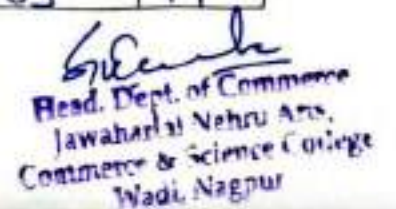 Head. Dept. of Commerce
Jawaharlal Nehru Arts,
Commerce & Science College
Wadi, Nagpur